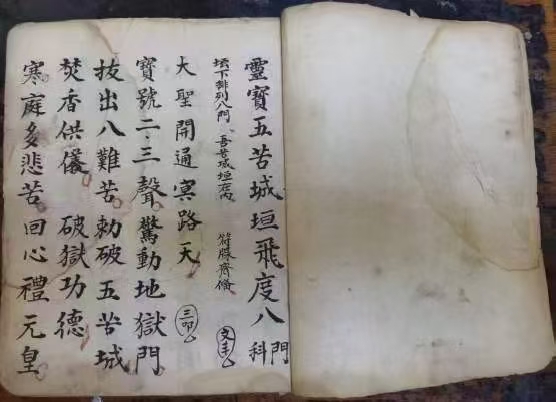 靈寶五苦城垣飛度八門科
坛下排列八門 吾苦城垣在内 符牒齊俻 文丰
大聖開通冥路天 三叩
寶號二三聲 驚動地獄門
拔出八難苦 勅破五苦城
焚香供儀 破獄功德
寒庭多悲苦 回心禮元皇